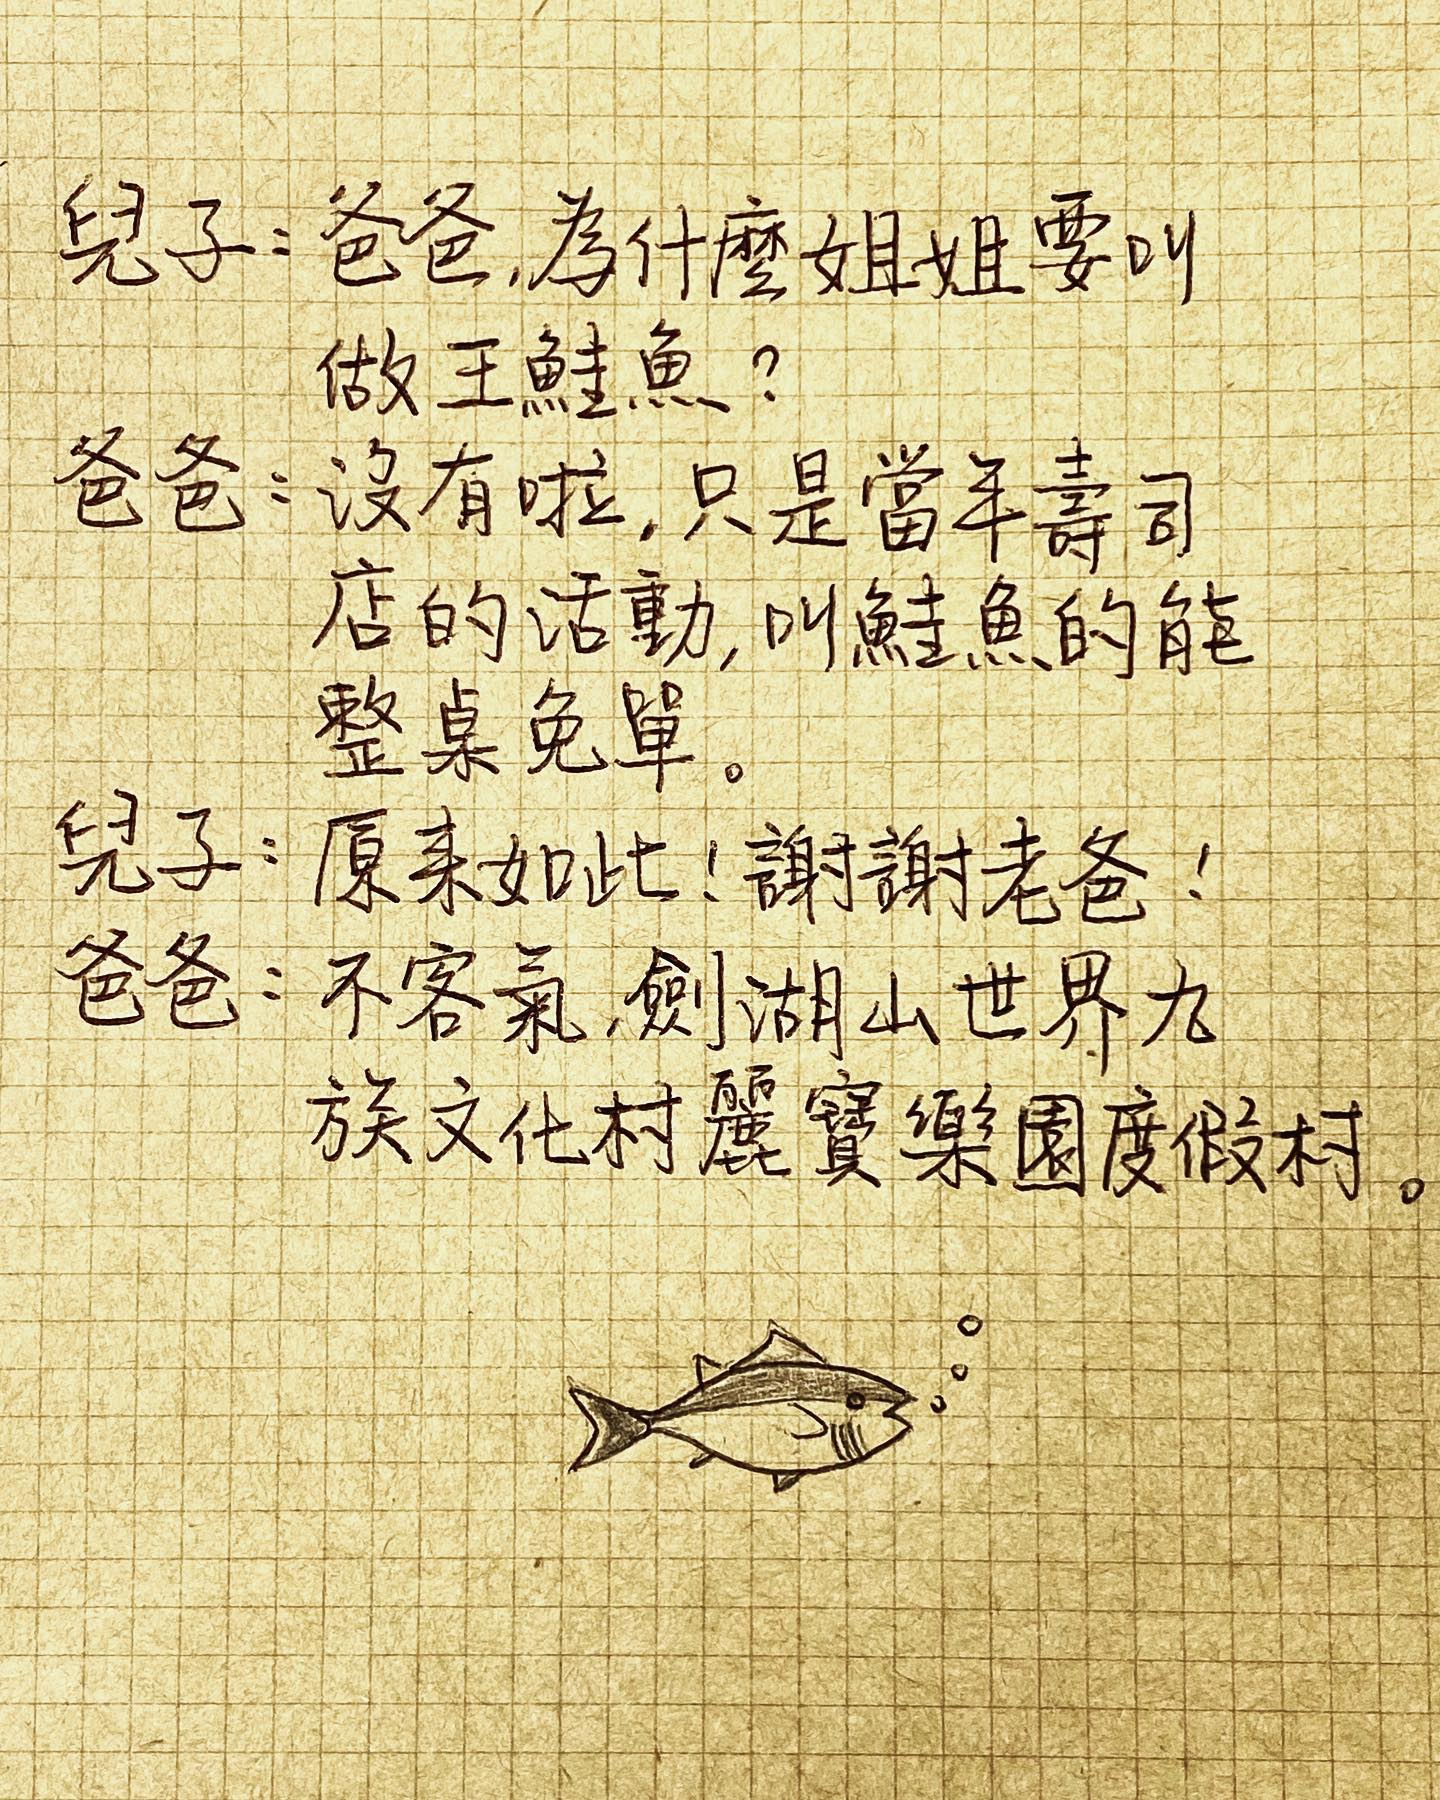 兒子：爸爸，為什麼姐姐要叫
做王鮭魚？
爸爸：沒有啦，只是當年壽司
店的活動，叫鮭魚的能
整桌免單。
兒子：原來如此！謝謝老爸！
爸爸：不客氣，劍湖山世界九
族文化村麗寶樂園度假村。